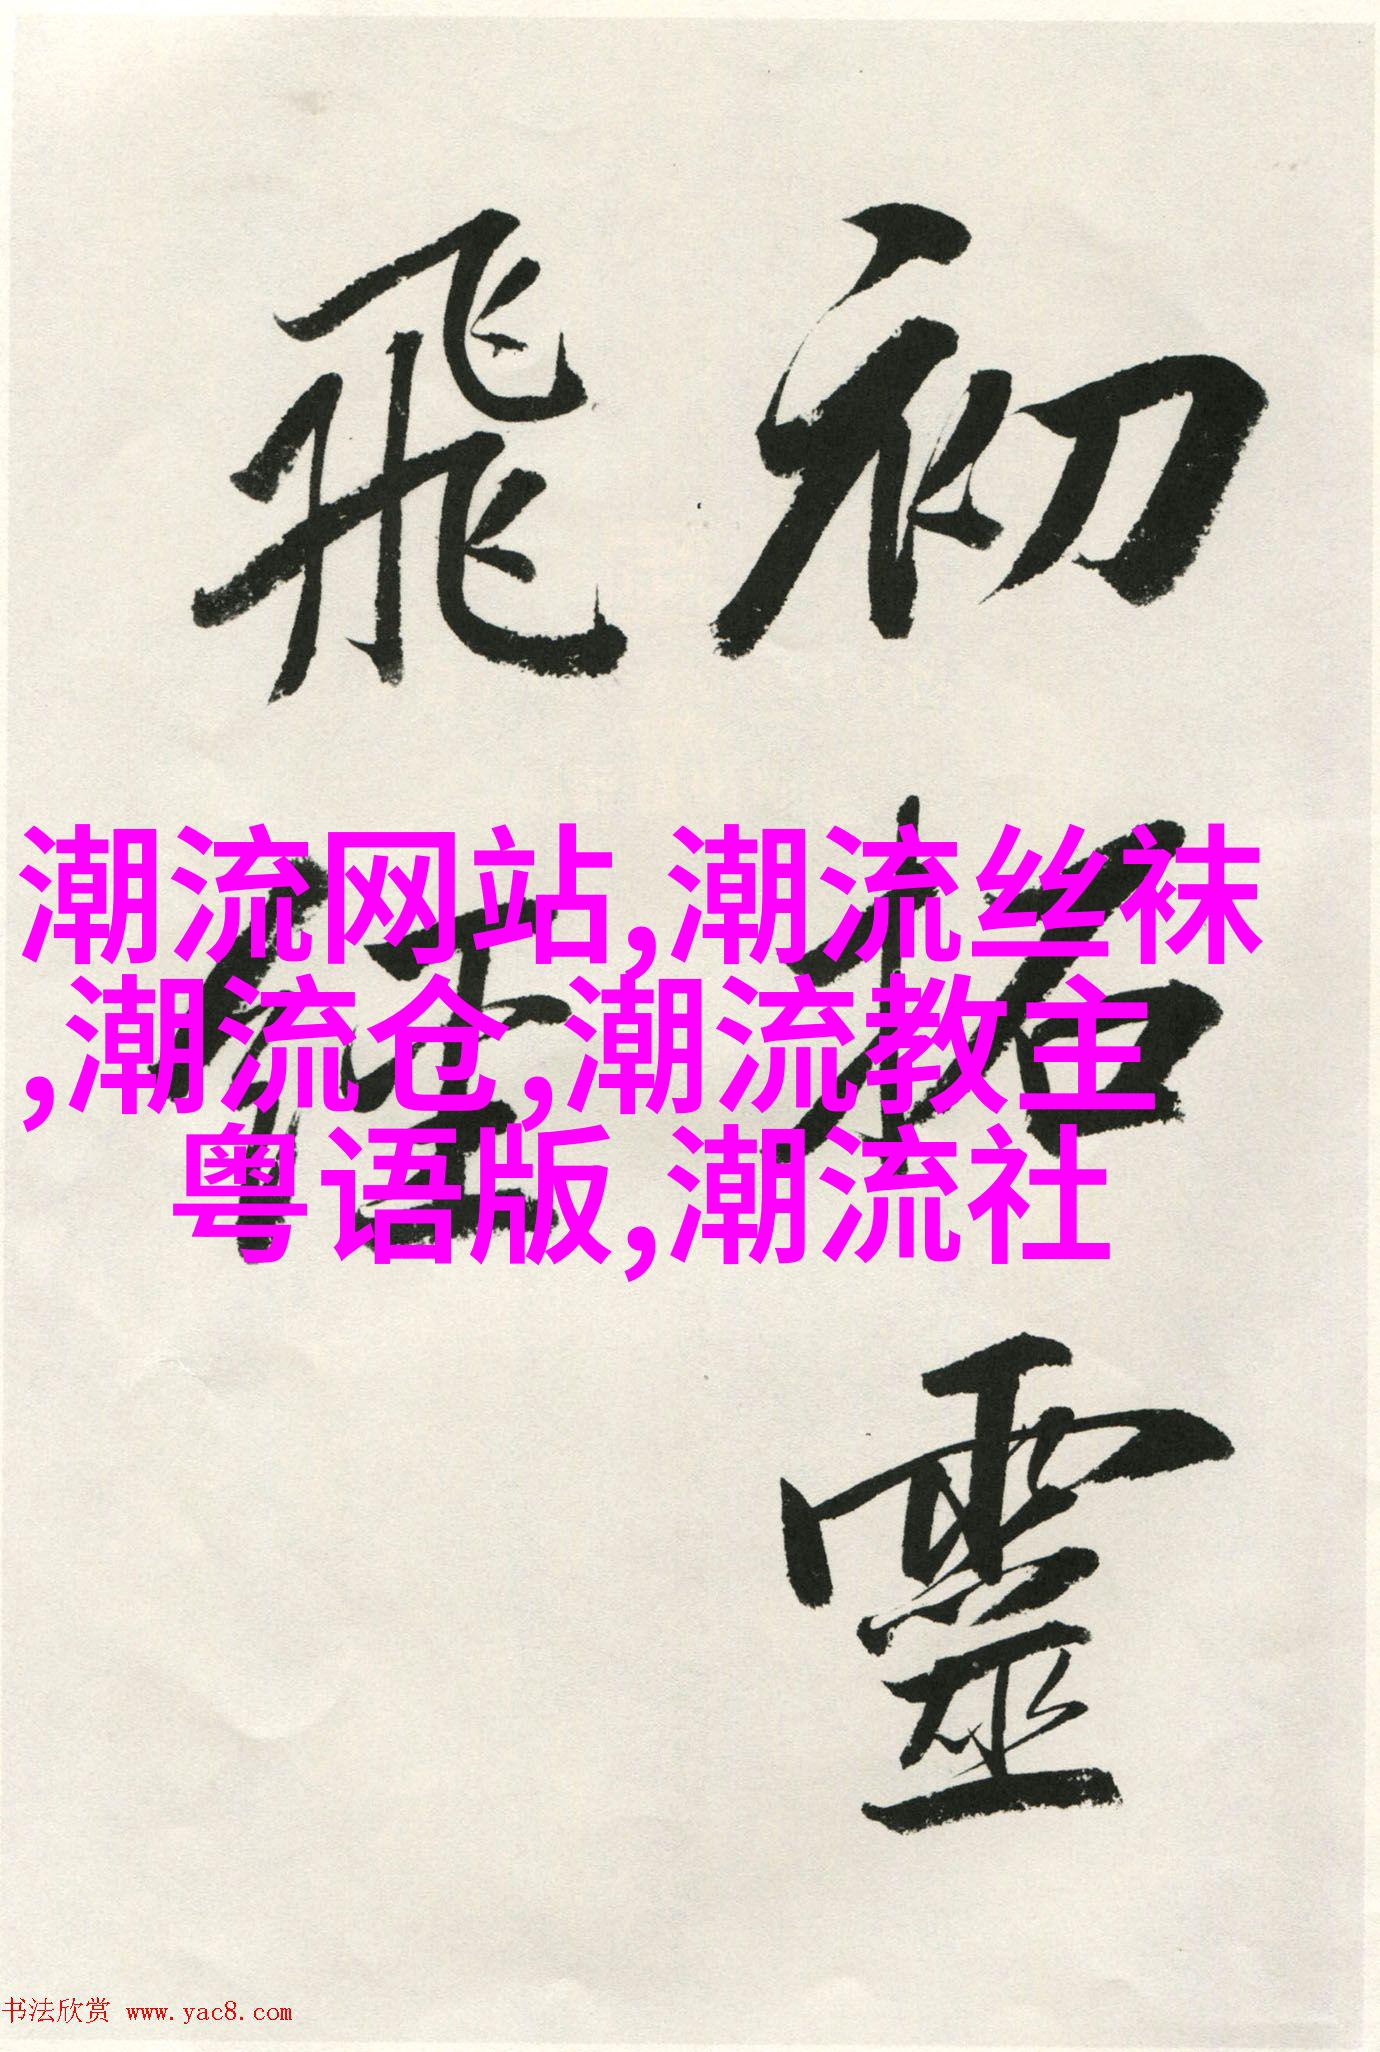 初拓靈
飛經
潮流网站,潮流丝袜
,潮流仓,潮流教主
粤语版,潮流社
书法欣赏 www.yac8.com